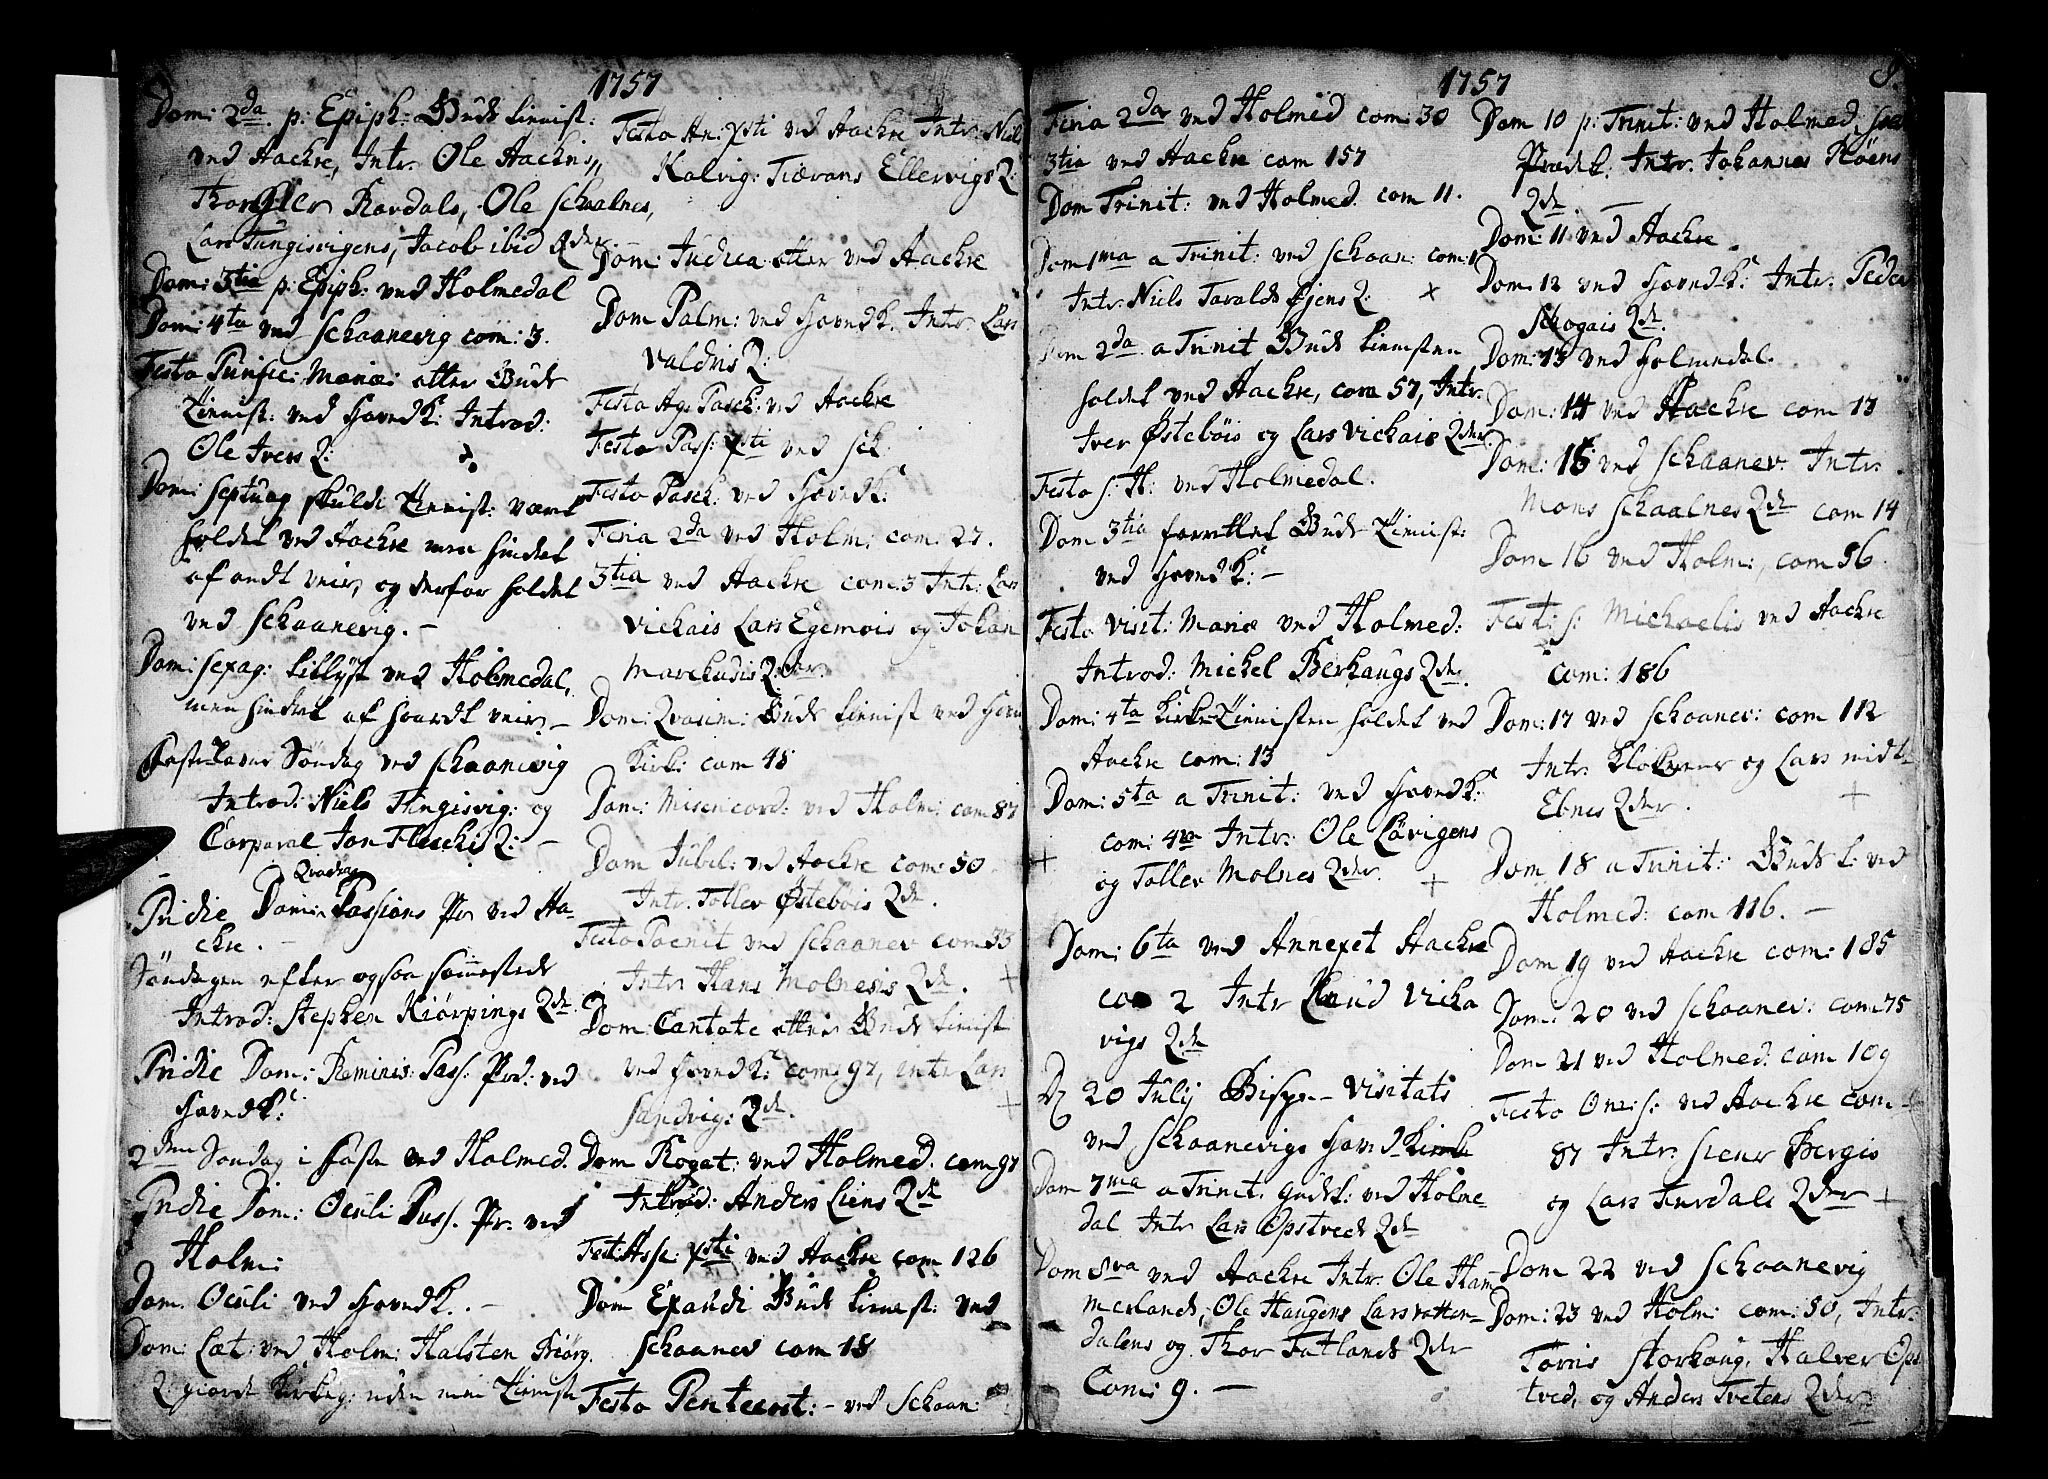 1757
Dom: 2da p: Epiph: Guds tienist:
ved Aachre, Intr. Ole Aachris,
Ravdals, Ole Schaalnes,
Lars Tungisvigens, Jacob ibid 2der
Dom: 3tia p: Epiph: ved Holmedal
Dom: 4ta ved Schaanevig com: 3.
Festo Purific: Mariæ: atter Guds
Tienist: ved Hovedk: Introd:
Ole Ivers Q:
Dom: Septuag skulde Tienist: været
holdet ved Aachre men hindret
af ondt veir, og derfor holdet
ved Schaanevig. -
Dom: Sexag: tillyst ved Holmedal,
men hindret af haardt veir. -
Faste-Lavns Söndag ved Schaanevig
Introd: Niels Tungisvig: og
Corporal Jon Fleschis Q: -
Qvadrag
Pridie Domin: Passions Pr ved Aa-
chre. -
Söndagen efter ogsaa sammesteds
Introd: Stephen Kiörpings Qde
Pridie Dom: Reminis: Pass. Præd: ved
Hovedk:
2den Söndag i Faste ved Holmed.
Pridie Dom: Oculi Pass. Pr. ved
Holm:
Dom. Oculi ved Hovedk. -
Dom: Læt: ved Holm: Halsten Biörg.
Q: giorde Kirkeg: uden min Tieniste
Festo An: Xsti ved Aachre Intr: Niels
Kalvig: Ellervigs Q:
Dom: Judica atter ved Aachre
Dom Palm: ved Hovedk. Intr. Lars
Valdris Q:
Festo Ag: Pasch: ved Aachre
Festo Pass: Xsti ved Sch:
Festo Pasch: ved Hovedk:
Feria 2da ved Holm: com: 27.
3tia ved Aachre com: 3 Intr: Lars
Vichais Lars Egemois og Johan
Marchusis Qder.
Dom: Qvasim: Guds tienist ved Hoved
Kirk: com 45
Dom: Misericord: ved Holm: com 87
Dom Jubil: ved Aachre com: 50
Intr. Tollev Østebøis Qde.
Festo Poenit ved Schaanev com 33
Intr. Hans Molnesis Qde. +
Dom: Cantate atter Guds tienist
ved Hovedk: com: 97, intr Lars
Sandvig: Qde. +
Dom Rogat: ved Holmed. com 97
Introd: Anders Liens Qde
Fest: Asse: Xsti ved Aachre com 126
Dom Exaudi Guds tienist: ved
Schaanev com 18
Festo Pentecost: - ved Schaan:
1757
8.
Feria 2da ved Holmed com: 30
3tia ved Aachre com 157
Dom Trinit: ved Holmed. com 11.
Dom 1ma a Trinit: ved Schaan: com 1
Intr: Niels Taralds Øjens Q: x
Dom 2da a Trinit Guds tienisten
holdet ved Aachre, com 57, Intr.
Iver Østebøis og Lars Vichais Qder.
Festo S: H: ved Holmedal.
Dom 3tia forrettet Guds Tienist:
ved Hovedk: -
Festo Visit: Mariæ ved Holmed:
Introd: Michel Berhaugs Qde.
Dom: 4ta Kirke-Tienisten holdet ved
Aachre com: 13
Dom: 5ta a Trinit: ved Hovedk:
com: 4 Intr: Ole Lavigens
+ og Tollev Molnes Qder. +
Dom: 6ta ved Annexet Aachre
com 2 Intr Knud Vicha
vigs Qde
D 20 July Bispe-Visitats
ved Schaanevigs Hoved Kirke
Dom 7ma a Trinit. gudst: ved Holme-
dal Intr Lars Opstveds Qde
Dom 8va ved Aachre Intr. Ole Ham-
merlands, Ole Haugens Lars
dalens og Thor Fatlands Qder
Com: 9. -
Dom 10 p: Trinit: ved Holmed,
Prædik: Intr. Johannes Röens
Qde. -
Dom: 11 ved Aachre.
Dom: 12 ved Hovedk: Intr. Peder
Schogais Qde.
Dom: 13 ved Holmedal.
Dom: 14 ved Aachre com 17
Dom: 15 ved Schaanev. Intr.
Mons Schaalnes Qde com 14
Dom 16 ved Holm:, com 56.
Fest: S: Michaelis ved Aachre
com: 186
Dom: 17 ved Schaanev: com 112
Intr. Klokerens og Lars midt-
Ebnes Qder. +
Dom 18 a Trinit: Guds t: ved
Holmed: com 116. -
Dom 19 ved Aachre com: 185
Dom: 20 ved Schaanev: com 75
Dom 21 ved Holmed. com 109
Festo One: S: ved Aachre com
87 Intr. Siens Bergis
og Lars Furdals Qder +
Dom 22 ved Schaanevig
Dom: 23 ved Holm: com: 50, Intr.
Törris Storhaug, Halver Ops
tved, og Anders Tvetens Qder.